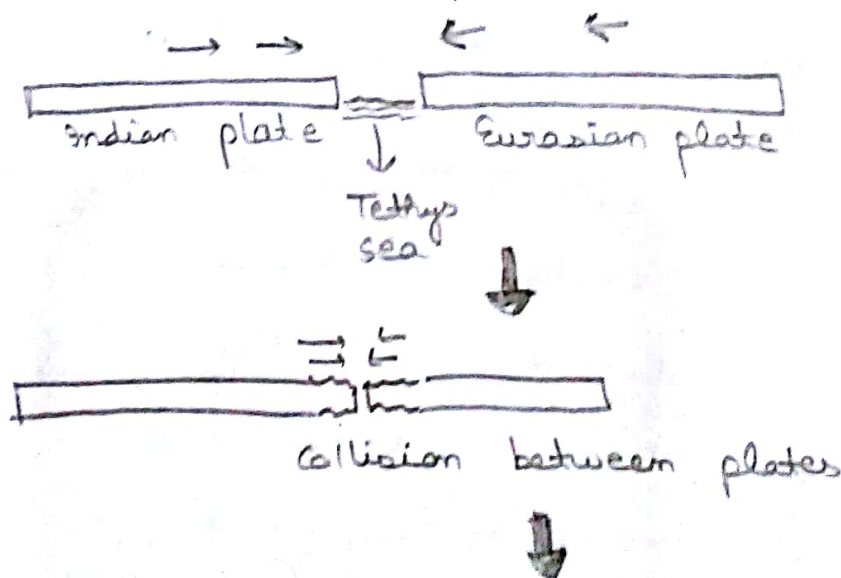 Indian plate
Eurasian plate
Tethys
sea
Collision between plates